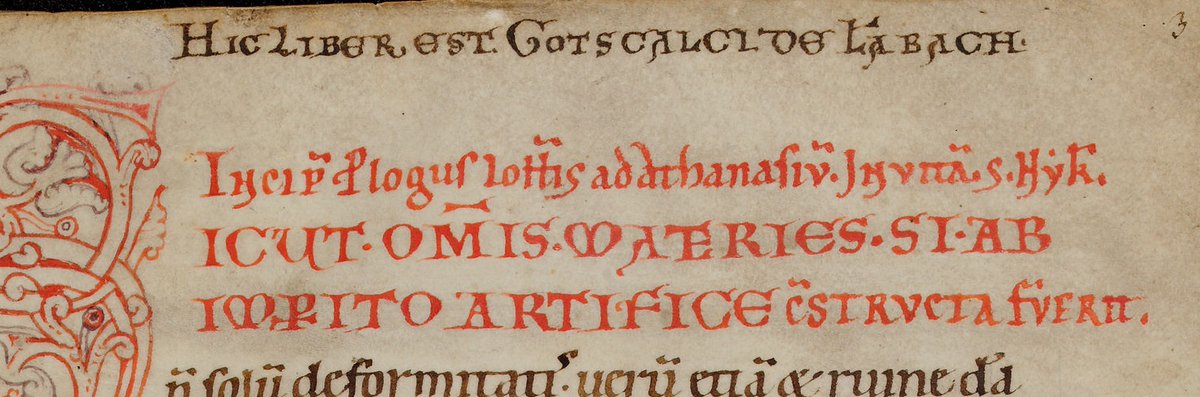 3
HIC LIBER EST. GOTSCALCI DE LĀBACH.
Incip̄ ꝓlogus Ioh̄is ad athanasiū. In uita. s. Nẏk̄.
ICUT. OM̄IS. MATERIES. SI. AB
IMPITO ARTIFICE c̄STRUCTA fūERIT.
n̄ solū deformitati. uerū etiā & ruine